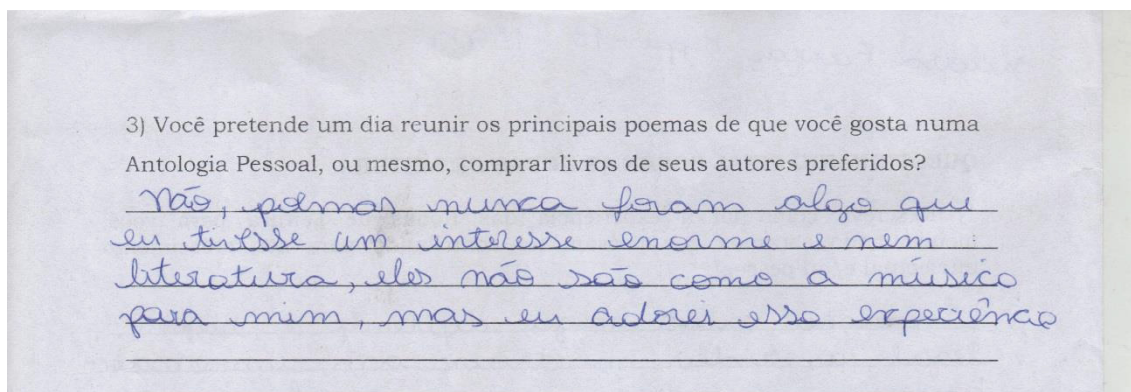 3) Você pretende um dia reunir os principais poemas de que você gosta numa
Antologia Pessoal, ou mesmo, comprar livros de seus autores preferidos?
Não, poemas nunca foram algo que
eu tivesse um interesse enorme e nem
literatura, eles não são como a música
para mim, mas eu adorei essa experiência